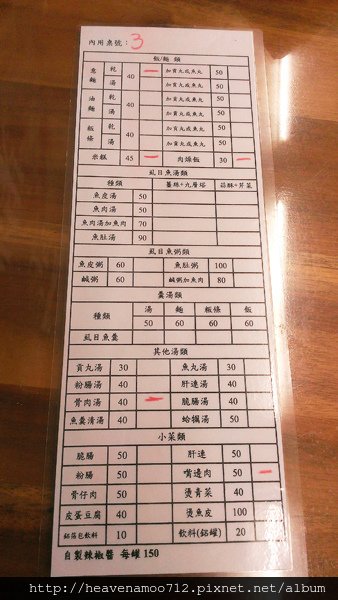 內用桌號：3
飯/麵 類
意麵 乾 40 加貢丸或魚丸 50
湯 加貢丸或魚丸 50
油麵 乾 40 加貢丸或魚丸 50
湯 加貢丸或魚丸 50
粄條 乾 40 加貢丸或魚丸 50
湯 加貢丸或魚丸 50
米糕 45 肉燥飯 30
虱目魚湯類
種類 薑絲+九層塔 蒜酥+芹菜
魚皮湯 50
魚肉湯 50
魚肉湯加魚肉 70
魚肚湯 90
虱目魚粥類
魚皮粥 60 魚肚粥 100
鹹粥 60 鹹粥加魚肉 80
羹湯類
種類 湯 麵 粄條 飯
50 60 60 60
虱目魚羹
其他湯類
貢丸湯 30 魚丸湯 30
粉腸湯 40 肝連湯 40
骨肉湯 40 脆腸湯 40
魚羹清湯 40 蛤蠣湯 50
小菜類
脆腸 50 肝連 50
粉腸 50 嘴邊肉 50
骨仔肉 50 燙青菜 40
皮蛋豆腐 40 燙魚皮 100
鋁箔包飲料 10 飲料(鋁罐) 20
自製辣椒醬 每罐 150
http://heavenamoo712.pixnet.net/album